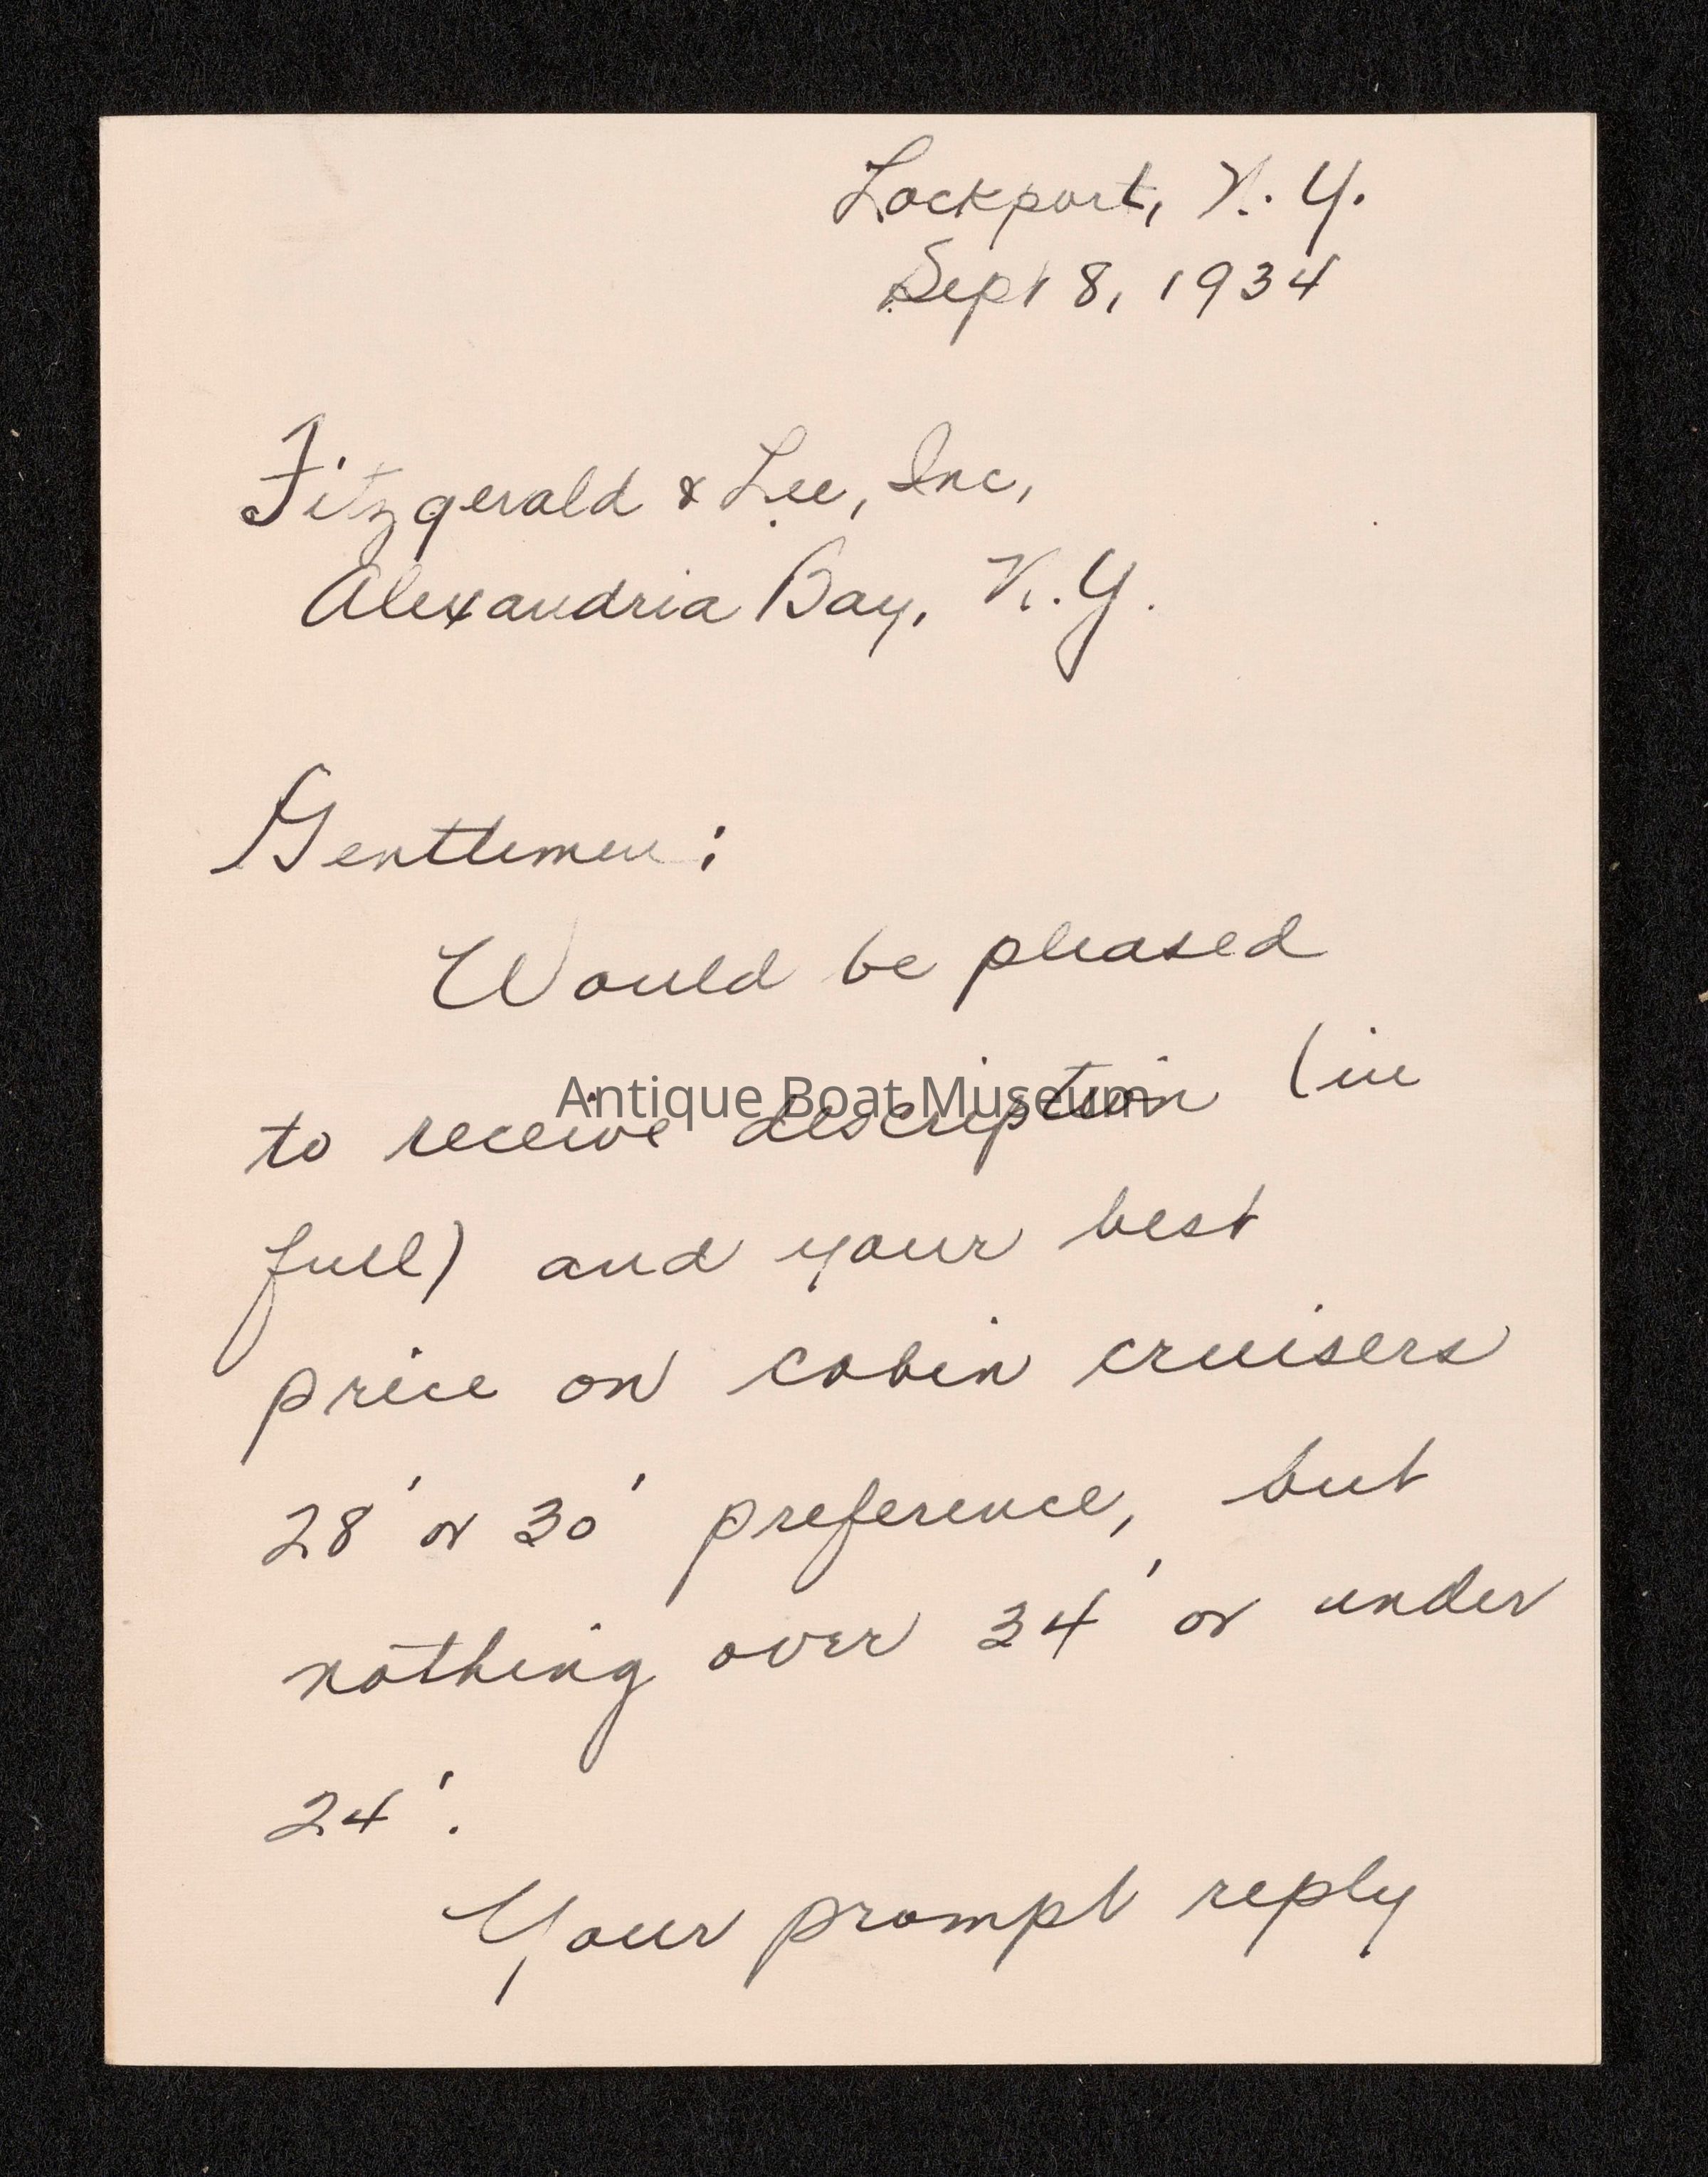 Lockport, N.Y.
Sept 8, 1934
Fitzgerald & Lee, Inc,
Alexandria Bay, N.Y.
Gentlemen:
Would be pleased
Antique Boat Museum
to receive description (in
full) and your best
price on cabin cruisers
28' or 30' preference, but
nothing over 34' or under
24'.
Your prompt reply